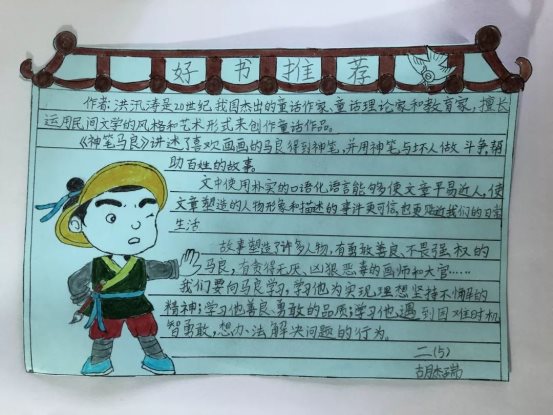 好书推荐
作者:洪汛涛是20世纪我国杰出的童话作家、童话理论家和教育家,擅长
运用民间文学的风格和艺术形式来创作童话作品。
《神笔马良》讲述了喜欢画画的马良得到神笔,并用神笔与坏人做斗争,帮
助百姓的故事。
文中使用朴实的口语化语言能够使文章平易近人,使
文章塑造的人物形象和描述的事件更可信,也更贴近我们的日常
生活
故事塑造了许多人物,有勇敢善良、不畏强权的
马良,有贪得无厌、凶狠恶毒的画师和大官……
我们要向马良学习,学习他为实现理想坚持不懈的
精神;学习他善良勇敢的品质;学习他遇到困难时机
智勇敢,想办法解决问题的行为。
二(5)
胡杰瑞